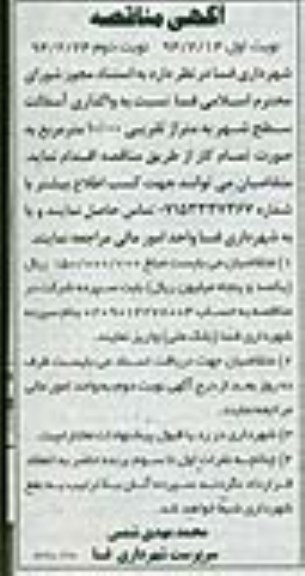 آگهی مناقصه
نوبت اول ۹۶/۷/۱۶ نوبت دوم ۹۶/۷/۲۴
شهرداری فسا در نظر دارد به استناد مجوز شورای
محترم اسلامی فسا نسبت به واگذاری آسفالت
سطح شهر به متراژ تقریبی مترمربع به
صورت تمام کار از طریق مناقصه اقدام نماید.
متقاضیان می توانند جهت کسب اطلاع بیشتر با
شماره تماس حاصل نمایند و یا
به شهرداری فسا واحد امور مالی مراجعه نمایند.
۱) متقاضیان می بایست مبلغ ریال
(پانصد و پنجاه میلیون ریال) بابت سپرده شرکت در
مناقصه به حساب بنام سپرده
شهرداری فسا (بانک ملی) واریز نمایند.
۲) متقاضیان جهت دریافت اسناد می بایست ظرف
ده روز بعد از درج آگهی نوبت دوم به واحد امور مالی
مراجعه نمایند.
۳) شهرداری در رد یا قبول پیشنهادات مختار است.
۴) چنانچه نفرات اول تا سوم برنده حاضر به انعقاد
قرارداد نگردند سپرده آنان به ترتیب به نفع
شهرداری ضبط خواهد شد.
محمد مهدی شمس
سرپرست شهرداری فسا